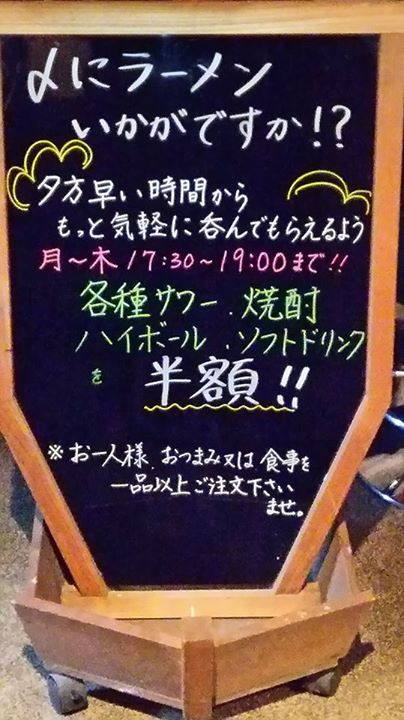 〆にラーメン
いかがですか!?
夕方早い時間から
もっと気軽に呑んでもらえるよう
月〜木 17:30〜19:00まで!!
各種サワー.焼酎
ハイボール.ソフトドリンク
を 半額!!
※お一人様.おつまみ又は食事を
一品以上ご注文下さい
ませ。